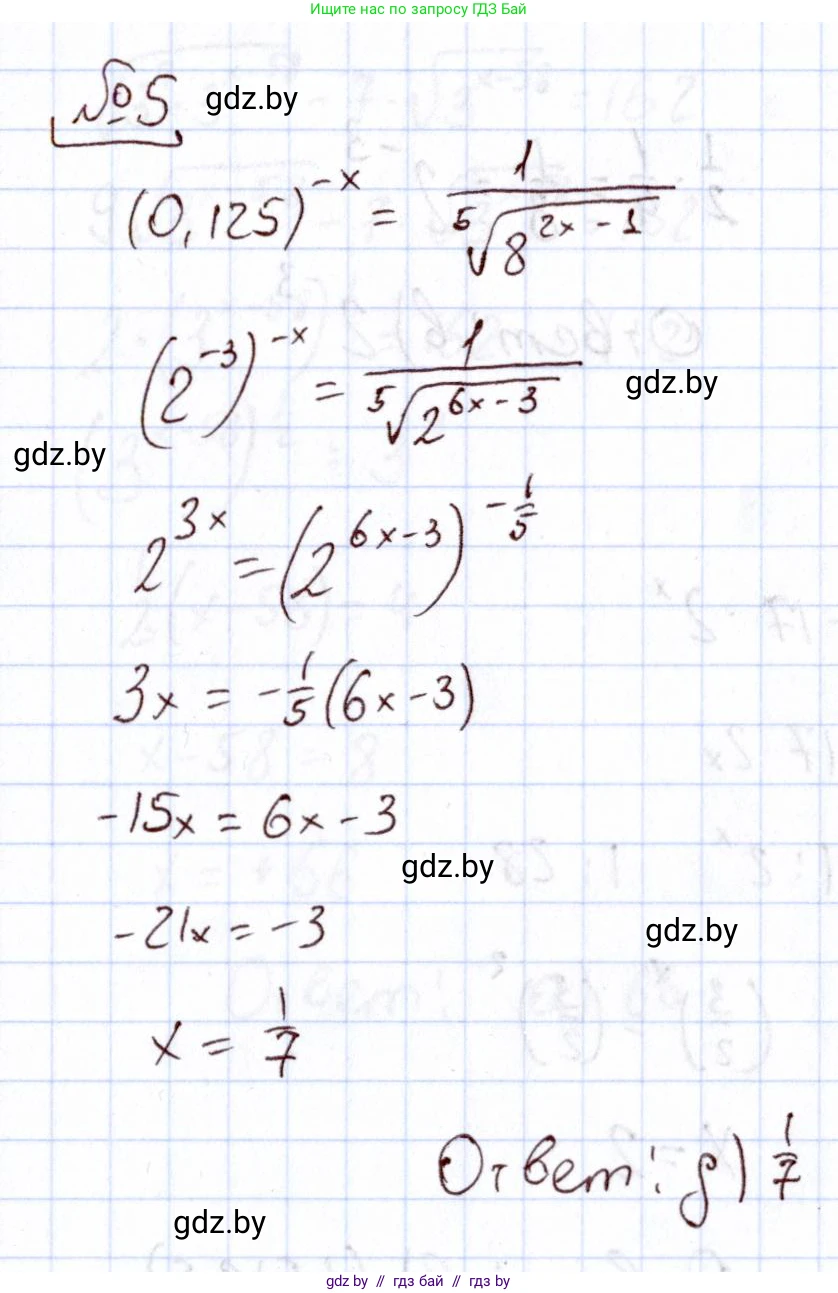 Ищите нас по запросу ГДЗ Бай
№5
gdz.by
(0,125)^{-x} = \frac{1}{\sqrt[5]{8^{2x-1}}}
(2^{-3})^{-x} = \frac{1}{\sqrt[5]{2^{6x-3}}}
gdz.by
gdz.by
2^{3x} = (2^{6x-3})^{-\frac{1}{5}}
3x = -\frac{1}{5}(6x-3)
-15x = 6x-3
gdz.by
-21x = -3
gdz.by
x = \frac{1}{7}
Ответ: д) \frac{1}{7}
gdz.by
gdz.by // гдз бай // гдз by